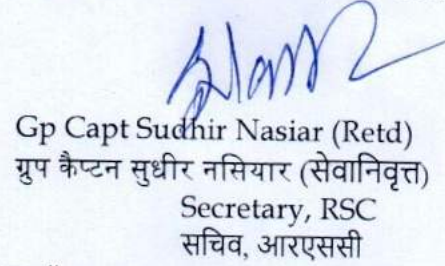 Gp Capt Sudhir Nasiar (Retd)
ग्रुप कैप्टन सुधीर नसियार (सेवानिवृत्त)
Secretary, RSC
सचिव, आरएससी